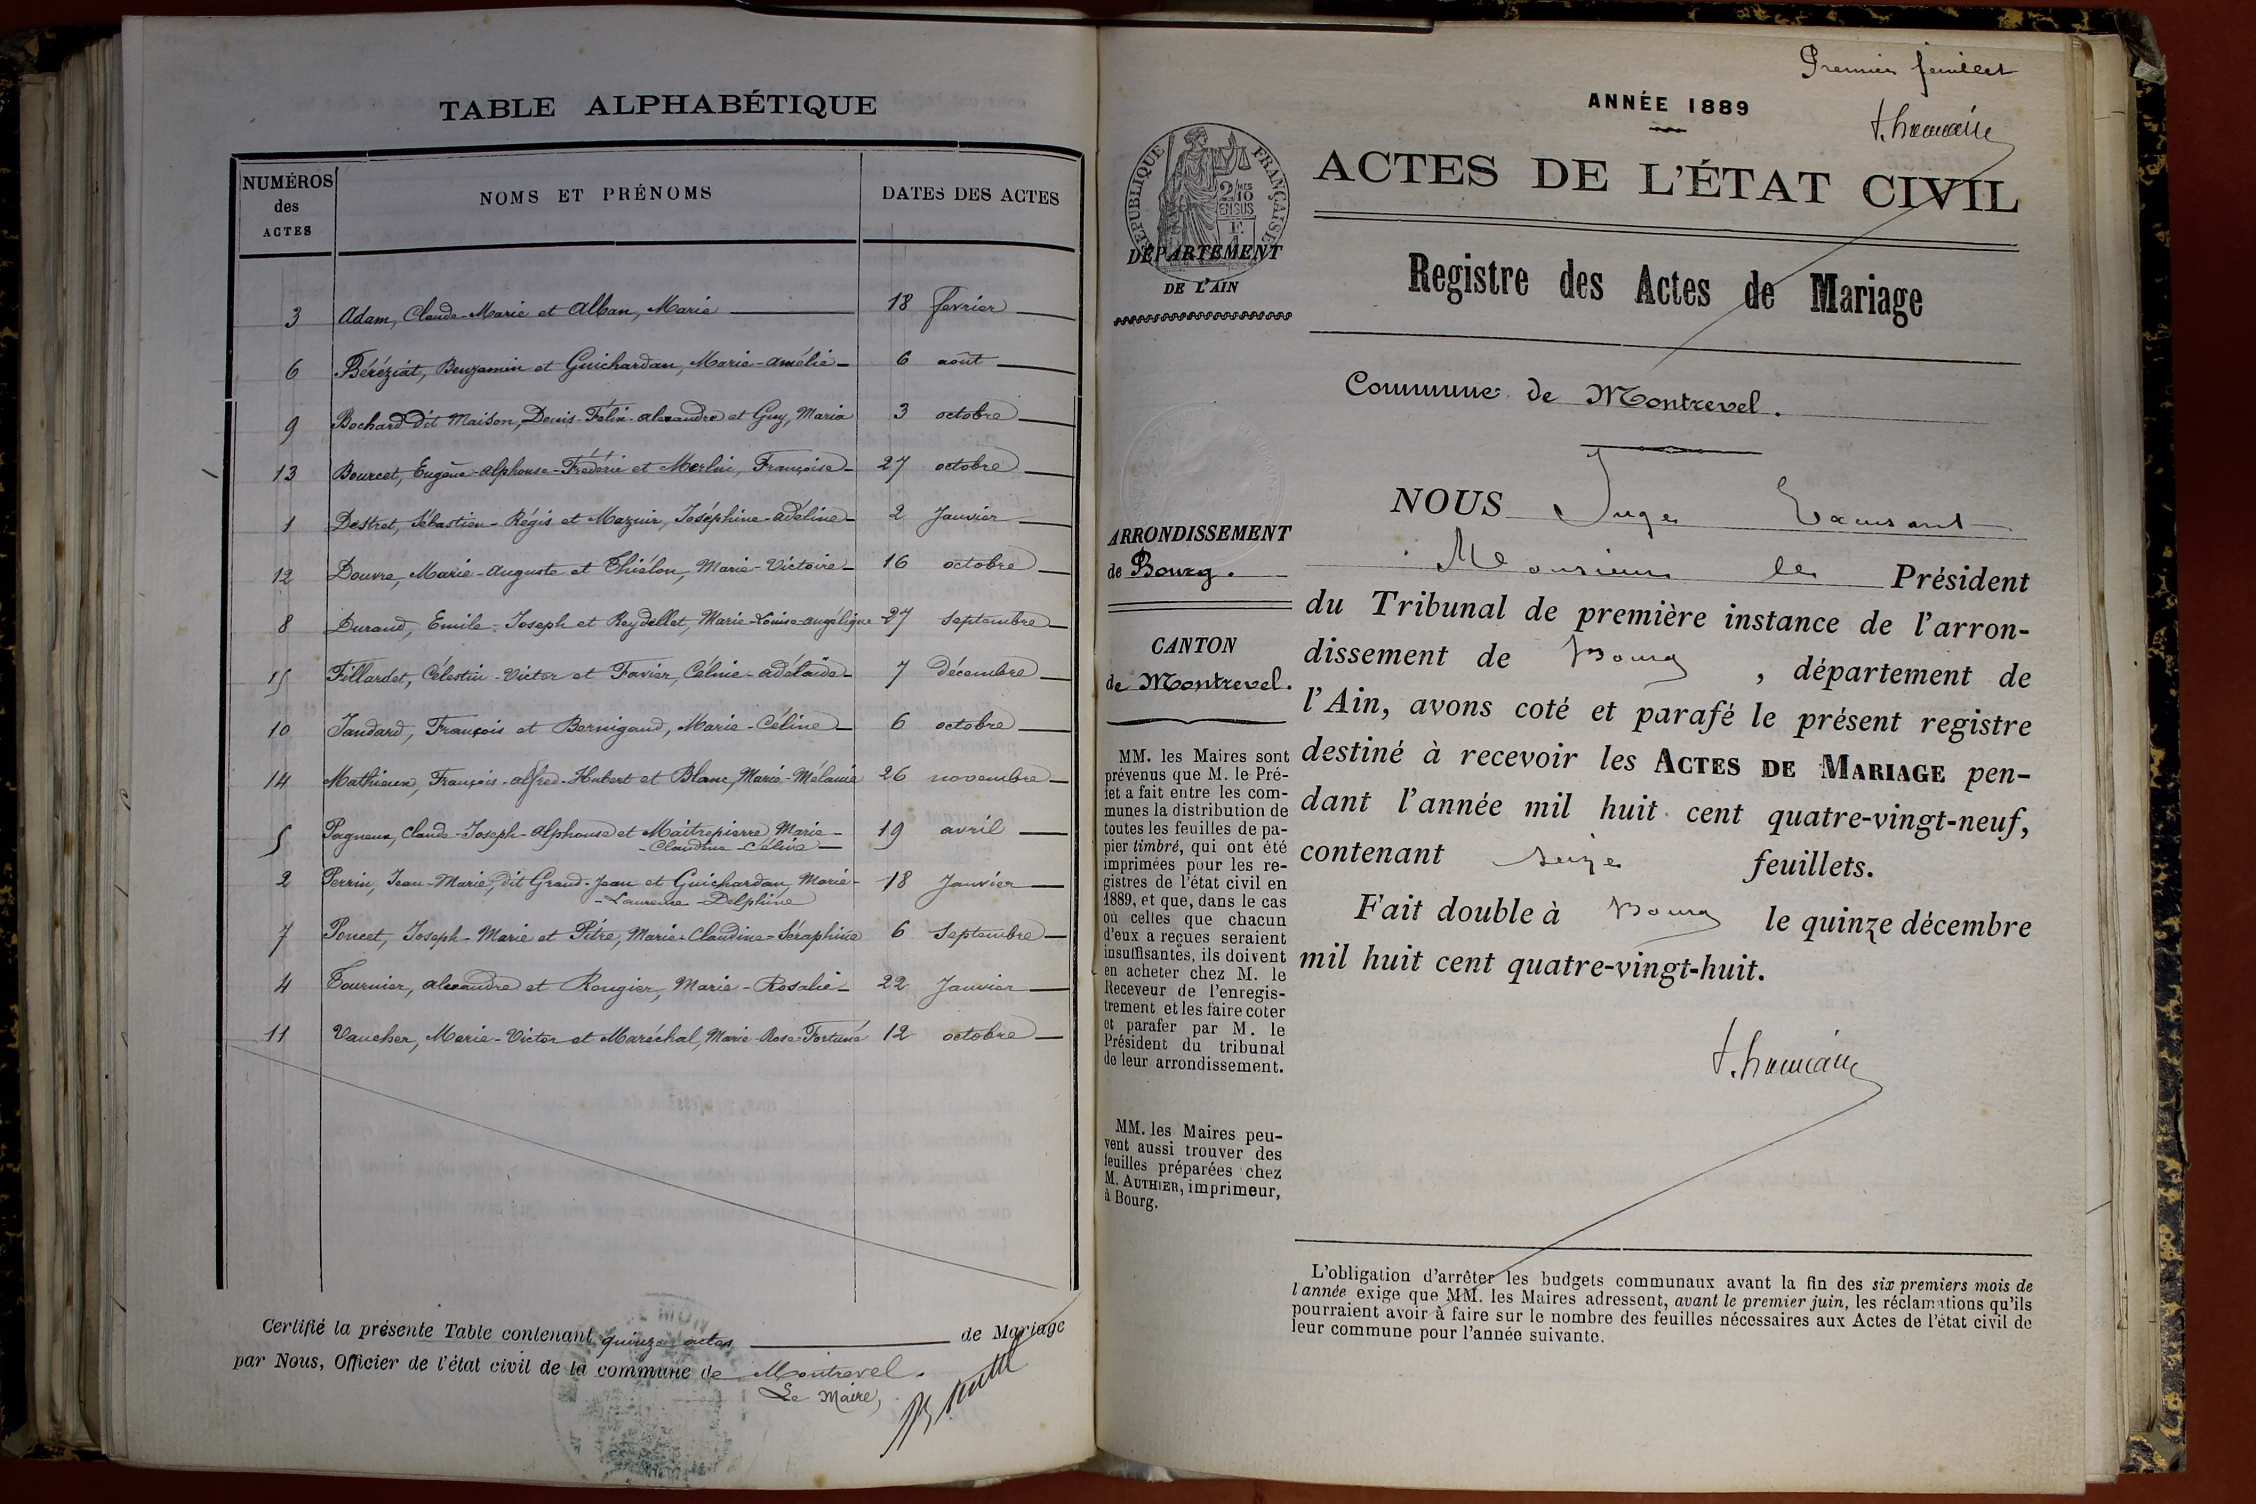 TABLE ALPHABÉTIQUE
NUMÉROS des ACTES
NOMS ET PRÉNOMS
DATES DES ACTES
3 Adam, Claude-Marie et Alban, Marie 18 février
6 Béréziat, Benjamin et Guichardan, Marie-Amélie 6 août
9 Bochard dit Maison, Denis-Félix-Alexandre et Guy, Maria 3 octobre
13 Bourcet, Eugène-Alphonse-Fréderic et Merlin, Françoise 27 octobre
1 Destret, Sébastien-Régis et Mazuir, Joséphine-Adéline 2 Janvier
12 Douvre, Marie-Auguste et Thiélon, Marie-Victoire 16 octobre
8 Durand, Emile-Joseph et Reydellet, Marie-Louise-Angélique 27 Septembre
15 Fillardet, Célestin-Victor et Favier, Célinie-Adélaïde 7 Décembre
10 Jandard, François et Bernigaud, Marie-Céline 6 octobre
14 Mathieux, François-Alfred-Hubert et Blanc, Marie-Mélanie 26 novembre
5 Pagneux, Claude-Joseph-Alphonse et Maitrepierre, Marie-
-Claudine-Célina 19 avril
2 Perrin, Jean-Marie, dit Grand-Jean et Guichardan, Marie-
-Laurence-Delphine 18 Janvier
7 Poncet, Joseph-Marie et Pitre, Marie-Claudine-Séraphine 6 Septembre
4 Tournier, Alexandre et Rougier, Marie-Rosalie 22 Janvier
11 Vaucher, Marie-Victor et Maréchal, Marie-Rose-Fortuné 12 octobre
Certifié la présente Table contenant quinze actes de Mariage
par Nous, Officier de l'état civil de la commune de Montrevel.
Le Maire,
Premier feuillet
ANNÉE 1889
ACTES DE L'ÉTAT CIVIL
RÉPUBLIQUE FRANÇAISE
2/10 EN SUS
DÉPARTEMENT
DE L'AIN
Registre des Actes de Mariage
Commune de Montrevel.
ARRONDISSEMENT
de Bourg.
CANTON
de Montrevel.
MM. les Maires sont
prévenus que M. le Pré-
fet a fait entre les com-
munes la distribution de
toutes les feuilles de pa-
pier timbré, qui ont été
imprimées pour les re-
gistres de l'état civil en
1889, et que, dans le cas
où celles que chacun
d'eux a reçues seraient
insuffisantes, ils doivent
en acheter chez M. le
Receveur de l'enregis-
trement et les faire coter
et parafer par M. le
Président du tribunal
de leur arrondissement.
MM. les Maires peu-
vent aussi trouver des
feuilles préparées chez
M. AUTHIER, imprimeur,
à Bourg.
NOUS Juge Excusant
Monsieur le Président
du Tribunal de première instance de l'arron-
dissement de Bourg, département de
l'Ain, avons coté et parafé le présent registre
destiné à recevoir les ACTES DE MARIAGE pen-
dant l'année mil huit cent quatre-vingt-neuf,
contenant seize feuillets.
Fait double à Bourg le quinze décembre
mil huit cent quatre-vingt-huit.
L'obligation d'arrêter les budgets communaux avant la fin des six premiers mois de
l'année exige que MM. les Maires adressent, avant le premier juin, les réclamations qu'ils
pourraient avoir à faire sur le nombre des feuilles nécessaires aux Actes de l'état civil de
leur commune pour l'année suivante.